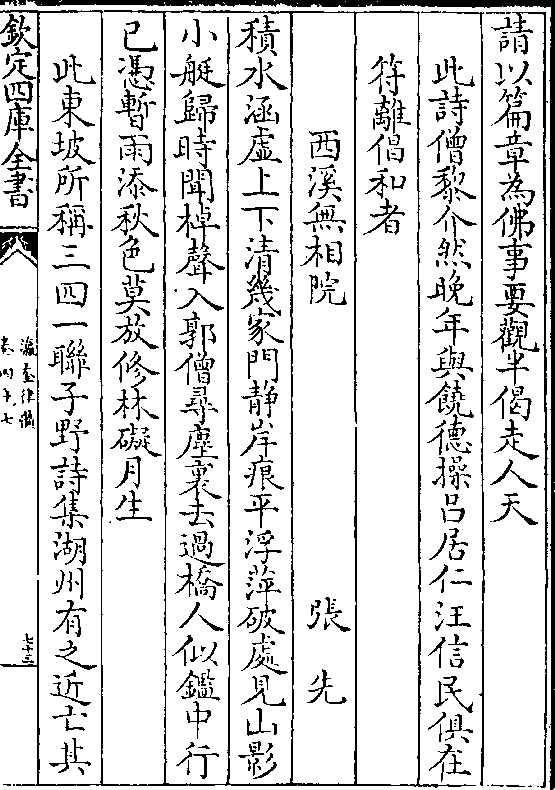 請以篇章為佛事要觀半偈走人天
此詩僧黎介然晚年與饒德操吕居仁汪信民俱在
符離倡和者
西溪無相院 張先
積水涵虚上下清幾家門静岸痕平浮萍破處見山影
小艇歸時聞棹聲入郭僧尋塵裏去過橋人似鑑中行
已憑暫雨添秋色莫放修林礙月生
此東坡所稱三四一聯子野詩集湖州有之近亡其
欽定四庫全書
瀛奎律髓
卷四十七
七十三